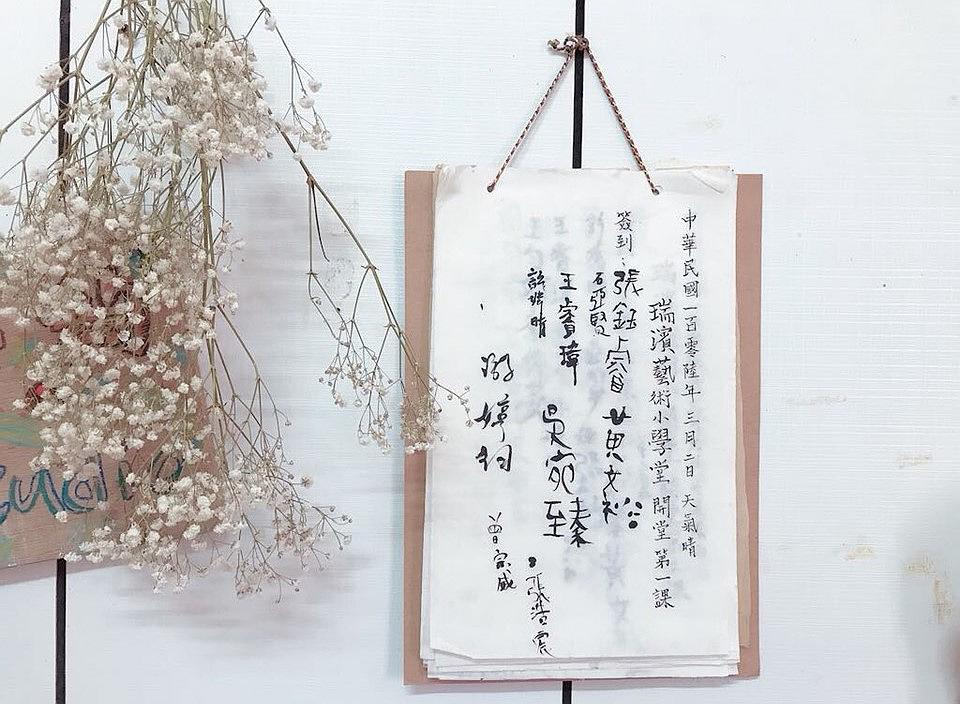 中華民國一百零陸年 三月二日 天氣晴
瑞濱藝術小學堂 開堂 第一課
簽到：張鈺睿 黃文裕
石亞賢
王睿瑋 吳宛臻
張浩震
游婷鈞
曾宗盛